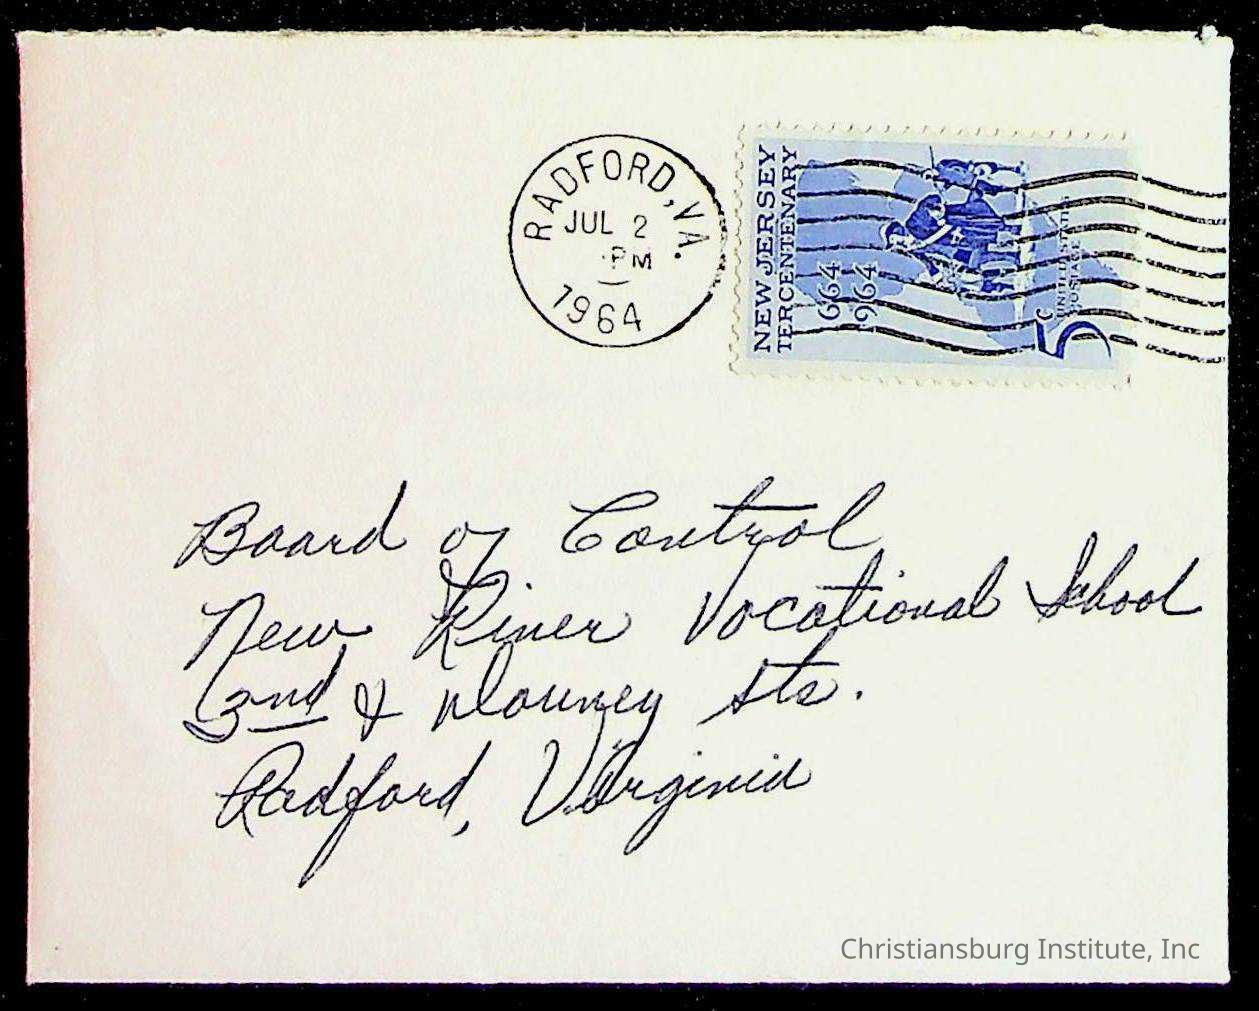 RADFORD, VA.
JUL 2
PM
1964
NEW JERSEY
TERCENTENARY
1664
1964
5c
UNITED STATES
POSTAGE
Board of Control
New River Vocational School
2nd & Downey Sts.
Radford, Virginia
Christiansburg Institute, Inc